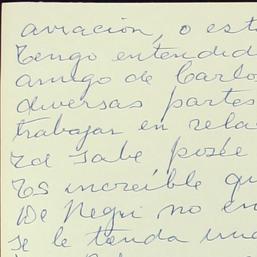 aviación, o est
Tengo entendid
amigo de Carlo
diversas partes
trabajar en rela
Ud sabe posée
Es increíble qu
De Negri no en
se le tienda una